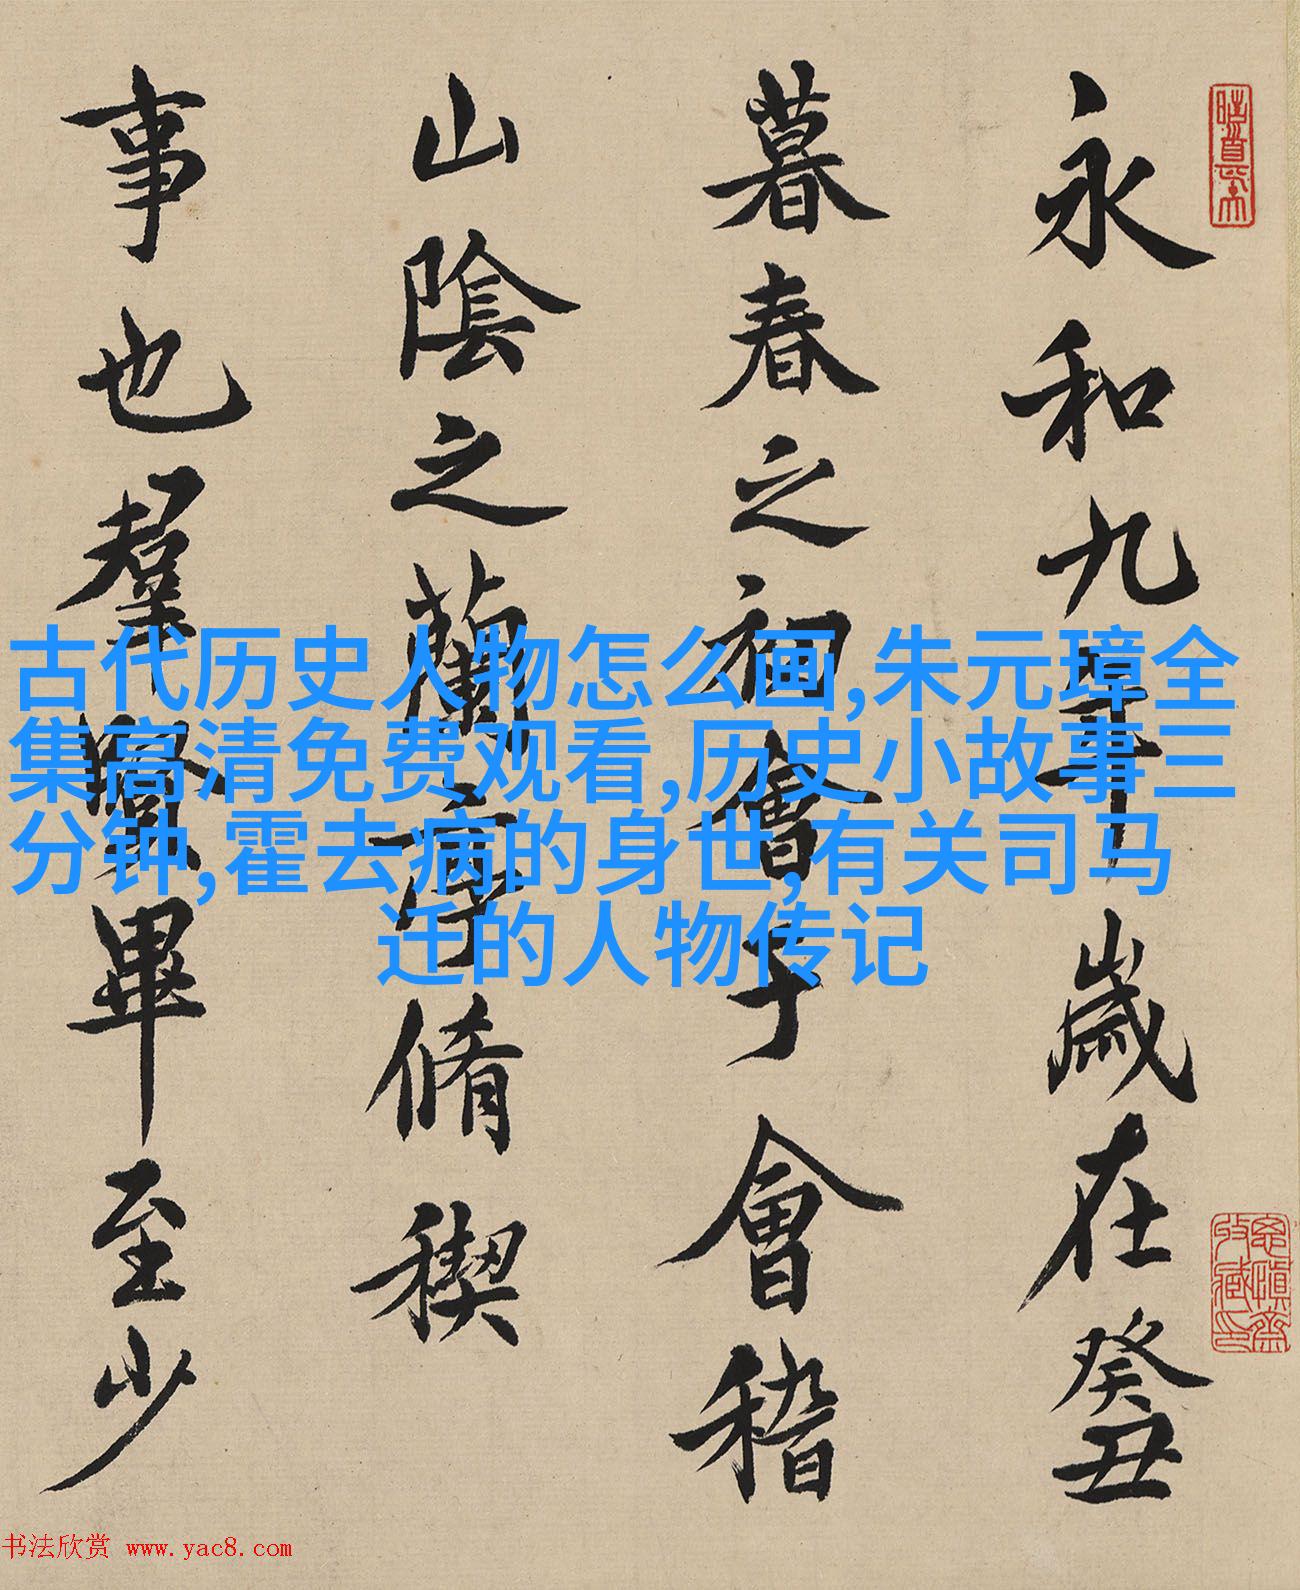 永和九年歲在癸丑
暮春之初會于會稽
山陰之蘭亭脩稧
事也羣賢畢至少
古代历史人物怎么画,朱元璋全
集高清免费观看,历史小故事三
分钟,霍去病的身世,有关司马
迁的人物传记
书法欣赏 www.yac8.com